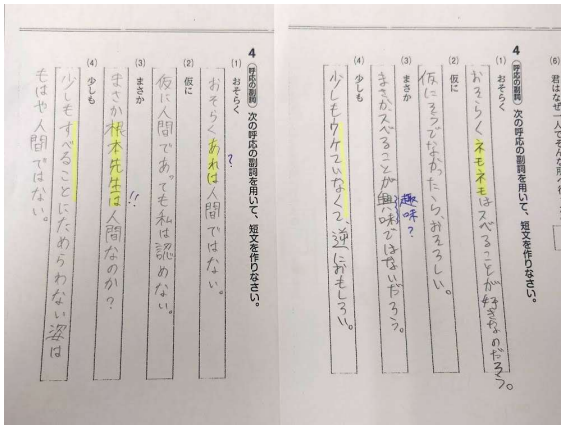 (6) 君はなぜ一人でそんな所へ
4 呼応の副詞 次の呼応の副詞を用いて、短文を作りなさい。
(1) おそらく
おそらくネモネモはスベることが好きなのだろう。
(2) 仮に
仮にそうでなかったら、おそろしい。
(3) まさか
まさかスベることが興味ではないだろう。
趣味?
(4) 少しも
少しもウケていなくて、逆におもしろい。
4 呼応の副詞 次の呼応の副詞を用いて、短文を作りなさい。
(1) おそらく
おそらくあれは人間ではない。
?
(2) 仮に
仮に人間であっても私は認めない。
(3) まさか
まさか根本先生は人間なのか?
!!
(4) 少しも
少しもすべることにためらわない姿は
もはや人間ではない。